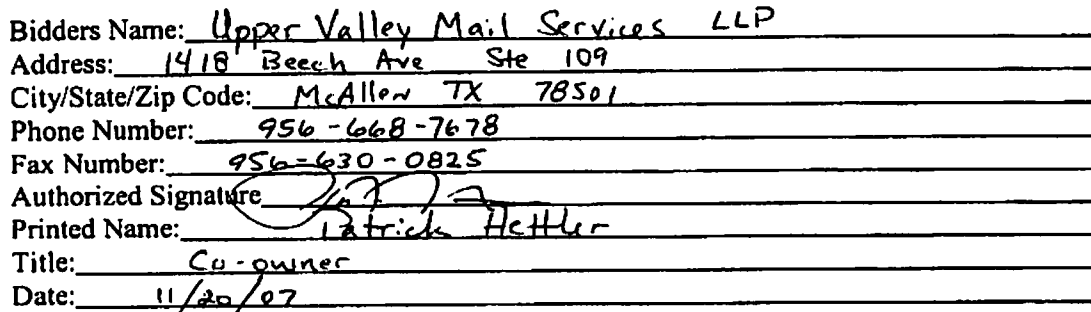 Bidders Name: Upper Valley Mail Services LLP
Address: 1418 Beech Ave Ste 109
City/State/Zip Code: McAllen TX 78501
Phone Number: 956-668-7678
Fax Number: 956-630-0825
Authorized Signature
Printed Name: Patrick Hettler
Title: Co-owner
Date: 11/20/07